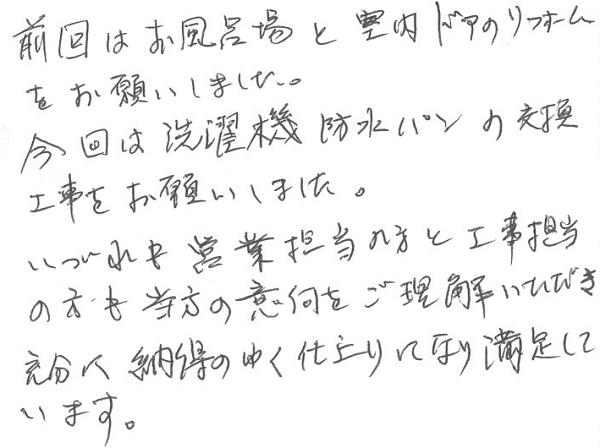 前回はお風呂場と室内ドアのリフォーム
をお願いしました。
今回は洗濯機防水パンの交換
工事をお願いしました。
いづれも営業担当の方と工事担当
の方も当方の意向をご理解いただき
充分に納得のゆく仕上りになり満足して
います。